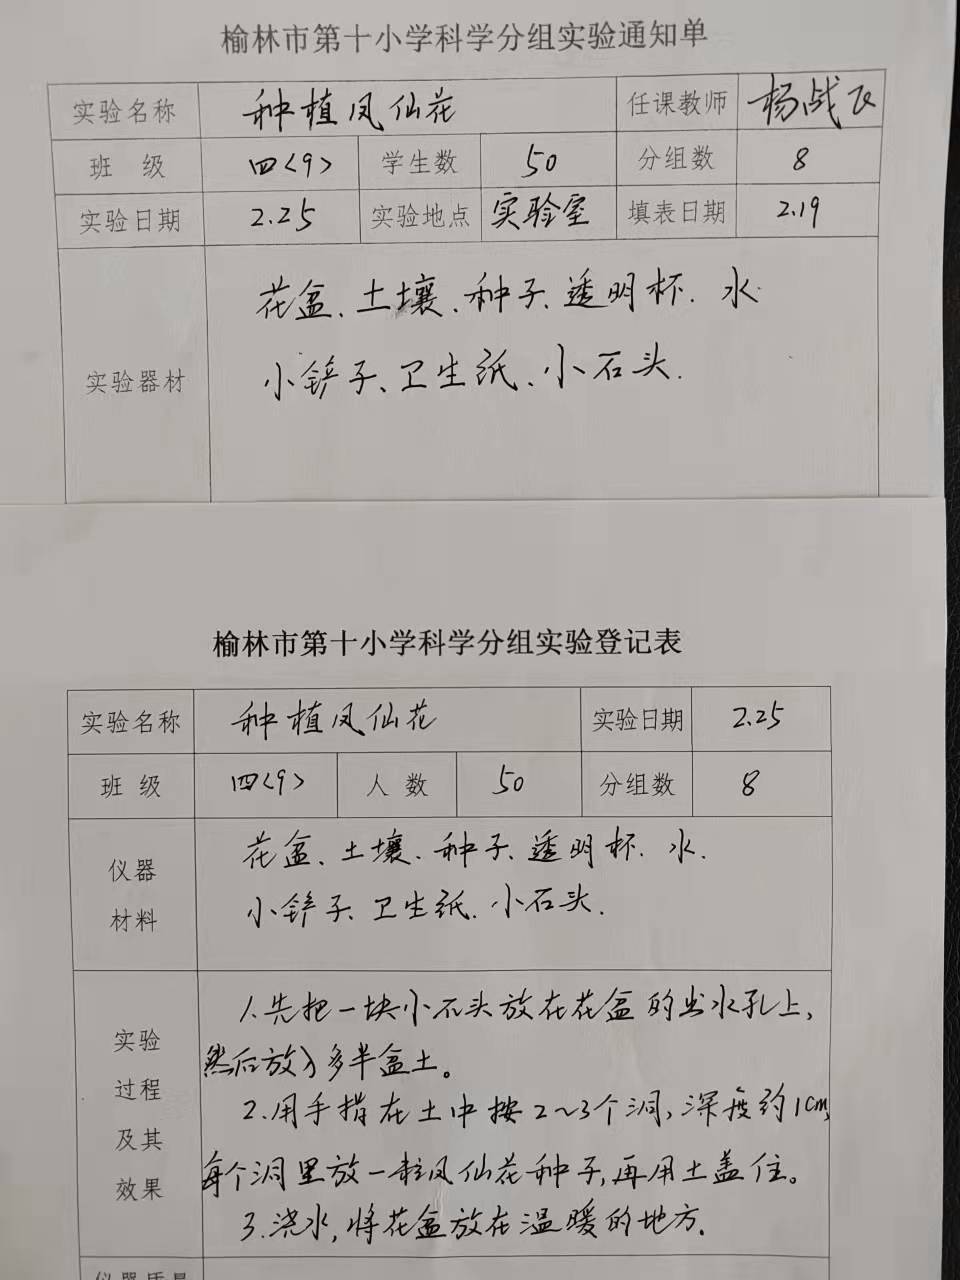 榆林市第十小学科学分组实验通知单
实验名称 种植凤仙花 任课教师 杨战飞
班 级 四<9> 学生数 50 分组数 8
实验日期 2.25 实验地点 实验室 填表日期 2.19
花盆、土壤、种子、透明杯、水
实验器材 小铲子、卫生纸、小石头.
榆林市第十小学科学分组实验登记表
实验名称 种植凤仙花 实验日期 2.25
班 级 四<9> 人 数 50 分组数 8
仪器 花盆、土壤、种子、透明杯、水.
材料 小铲子、卫生纸、小石头.
1.先把一块小石头放在花盆的出水孔上,
实验 然后放入多半盆土。
过程 2.用手指在土中按2~3个洞,深度约1cm,
及其 每个洞里放一粒凤仙花种子,再用土盖住。
效果 3.浇水,将花盆放在温暖的地方.
仪器质量